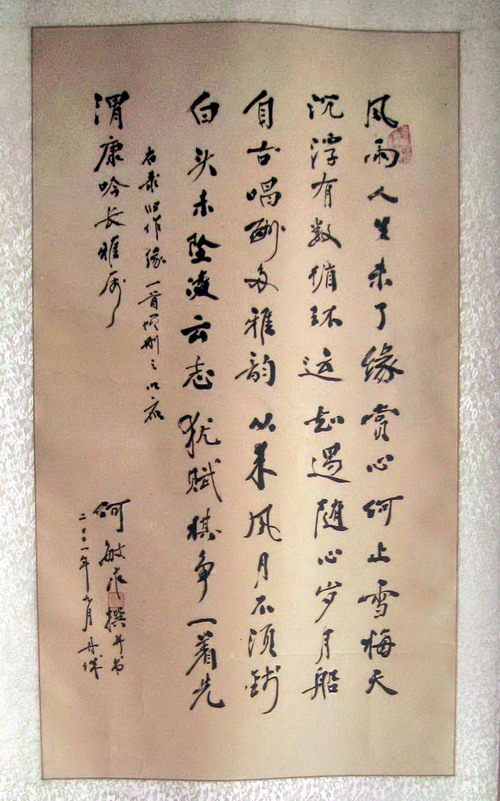 风雨人生未了缘赏心何止雪梅天
沉浮有数循环运知遇随心岁月船
自古唱酬多雅韵从来风月不须钱
白头未坠凌云志犹赋棋争一着先
右录旧作缘一首
渭康吟长雅属
何敏撰并书
二〇〇一年月丹城